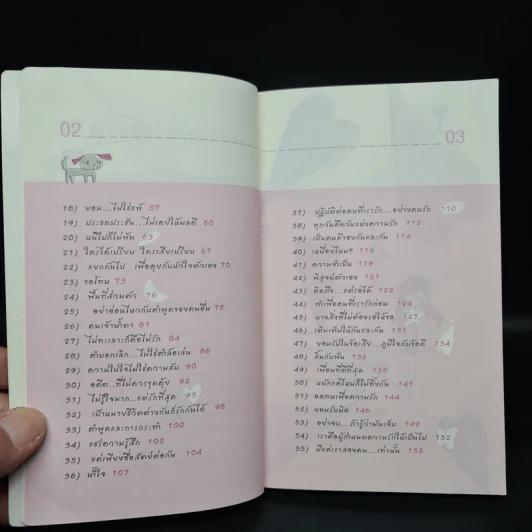 02
18) ยอม...ไม่ใช่แพ้ 57
19) ประชดประชัน...ไม่เคยให้ผลดี 60
20) หนีไปก็ไม่พ้น 63
21) ใครได้เปรียบ ใครเสียเปรียบ 67
22) แยกกันไป เพื่อคุยกับหัวใจตัวเอง 70
23) ขอโทษ 73
24) พื้นที่ส่วนตัว 76
25) อย่าอ่อนไหวกับคำพูดของคนอื่น 78
26) คนเจ้าน้ำตา 81
27) ไม่ทะเลาะก็คือไม่รัก 84
28) คำบอกเลิก...ไม่ใช่คำล้อเล่น 86
29) ความในใจไม่ใช่ความลับ 90
30) อดีต...ที่ไม่ควรขุดคุ้ย 92
31) ไม่รู้ใจมาก...แต่รักที่สุด 95
32) เป้าหมายชีวิตต่างกันก็รักกันได้ 98
33) คำพูดและการกระทำ 100
34) แชร์ความรู้สึก 102
35) แค่เพียงซื่อสัตย์ต่อกัน 104
36) แก้ไข 107
03
37) ปฏิบัติต่อคนที่เรารัก...อย่างคนรัก 110
38) ทุกวันคือวันแห่งความรัก 112
39) เป็นคนดีของกันและกัน 114
40) เหนื่อยไหม? 116
41) ความจำเป็น 119
42) พิสูจน์ตัวเอง 121
43) คิดถึง...แต่รอได้ 122
44) ทำเพื่อคนที่เรารักก่อน 124
45) บางสิ่งที่ไม่ต้องรอให้ขอ 127
46) เติมเต็มให้กันและกัน 131
47) ยอมรับในข้อเสีย...ภูมิใจกับข้อดี 134
48) ลิ้นกับฟัน 136
49) เพื่อนที่ดีที่สุด 138
50) หนักแค่ไหนก็ไม่ทิ้งกัน 141
51) อดทนเพื่อความรัก 144
52) ยอมรับผิด 146
53) อย่าจบ...ถ้ารู้ว่ามันเจ็บ 149
54) เราคือผู้กำหนดความรักให้เป็นไป 152
55) มีแค่เราสองคน...เท่านั้น 155